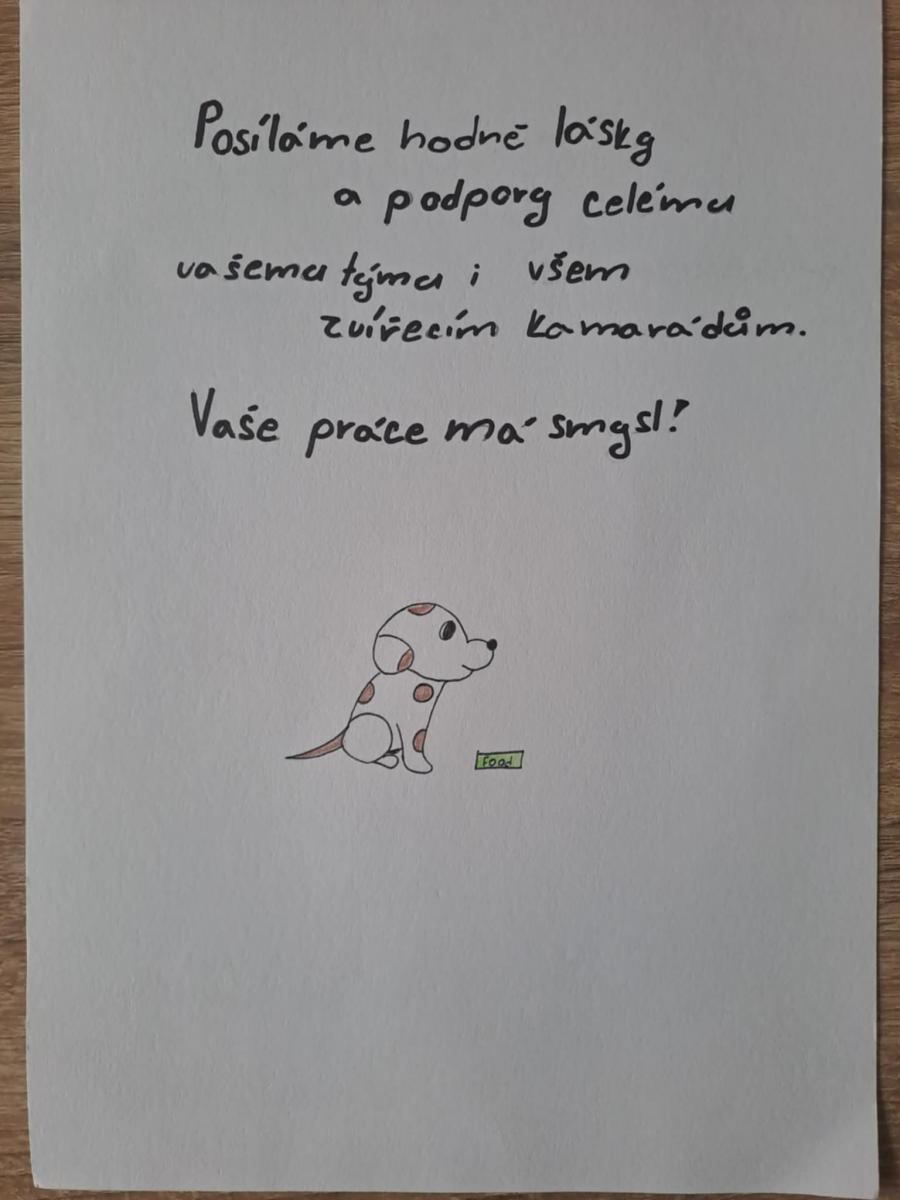 Posíláme hodně lásky
a podpory celému
vašemu týmu i všem
zvířecím kamarádům.
Vaše práce má smysl!
Food